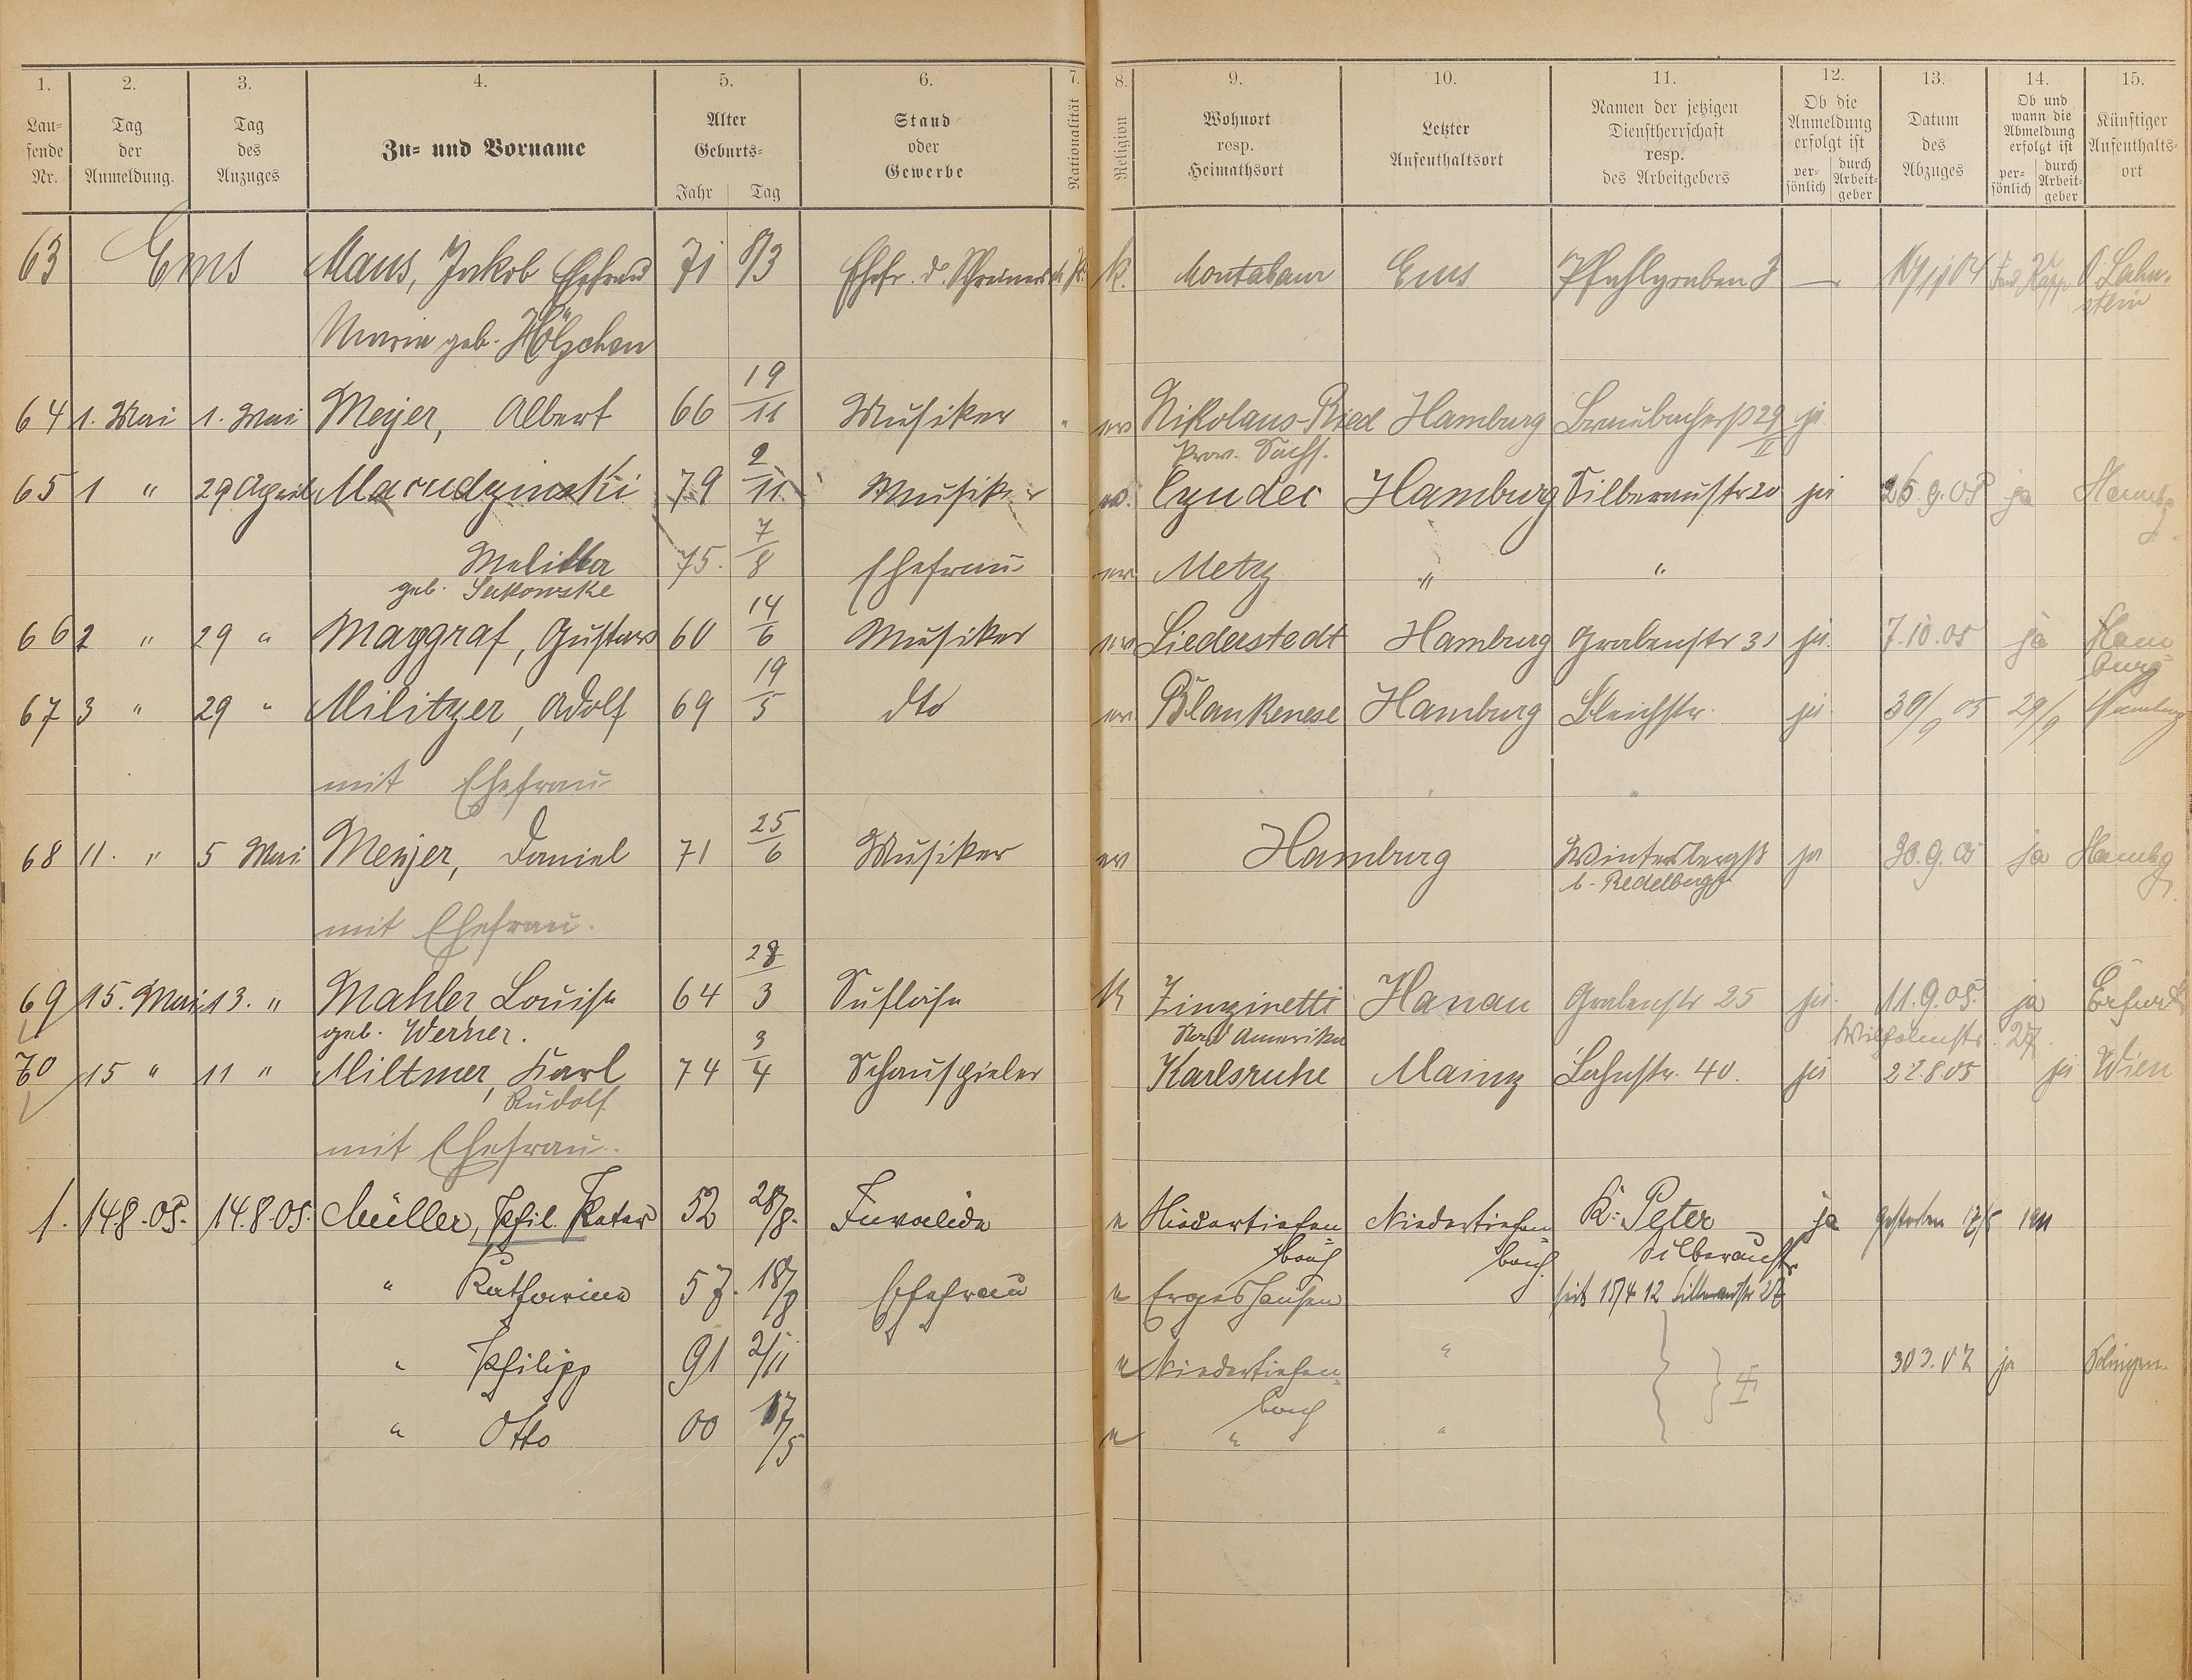 1. 2. 3. 4. 5. 6. 7. 8. 9. 10. 11. 12. 13. 14. 15.
Laufende Nr.
Tag der Anmeldung.
Tag des Anzuges
Zu- und Vorname
Alter Geburts- Jahr Tag
Stand oder Gewerbe
Nationalität
Religion
Wohnort resp. Heimathsort
Letzter Aufenthaltsort
Namen der jetzigen Dienstherrschaft resp. des Arbeitgebers
Ob die Anmeldung erfolgt ist persönlich durch Arbeitgeber
Datum des Abzuges
Ob und wann die Abmeldung erfolgt ist persönlich durch Arbeitgeber
Künftiger Aufenthaltsort
63 Ems Maus, Jakob Ehefrau 71 8/3 Ehefr. d. Schreiners k. Montabaur Ems Pfahlgraben 3 — O. Lahnstein
Maria geb. Hölzchen
64 1. Mai 1. Mai Meyer, Albert 66 19/11 Musiker " ev Nikolaus-Ried Hamburg Braubacherstr 29 II ja
Prov. Sachs.
65 1 " 29 April Marudzinski 79 2/11 Musiker ev. Cyndec Hamburg Silberaustr 20 ja 26.9.05 ja Hambg.
Melitta 75. 7/8 Ehefrau ev Metz " "
geb. Sukowske
66 2 " 29 " Marggraf, Gustav 60 14/6 Musiker ev Liederstedt Hamburg Grabenstr 31 ja. 7.10.05 ja Hamburg
67 3 " 29 " Militzer, Adolf 69 19/5 dto ev Blankenese Hamburg Bleichstr. ja 30/9 05 29/9 Hamburg
mit Ehefrau
68 11. " 5 Mai Meyer, Daniel 71 25/6 Musiker ev Hamburg Wintersbergstr ja 30.9.05 ja Hambg.
b. Redelberger
mit Ehefrau.
69 15. Mai 13. " Mahler Louise 64 28/3 Sufleuse k Zinzinetti Hanau Grabenstr 25 ja. 11.9.05. ja Erfurt
geb. Werner. Nord Amerika Wilhelmstr. 27.
70 15 " 11 " Miltmer, Karl 74 3/4 Schauspieler Karlsruhe Mainz Lahnstr. 40. ja 22.8.05 ja Wien
Rudolf
mit Ehefrau.
1. 14.8.05. 14.8.05. Müller, Phil. Peter 52 28/8. Invalide e Niedertiefenbach Niedertiefenbach K. Peter ja gestorben 17/5 1911
Silberaustr
" Katharine 57. 18/8 Ehefrau e Ergeshausen seit 15/4 12 Silberaustr 28
" Philipp 91 2/11 e Niedertiefenbach " 30 3.07 ja Solingen.
" Otto 00 17/5 e " "